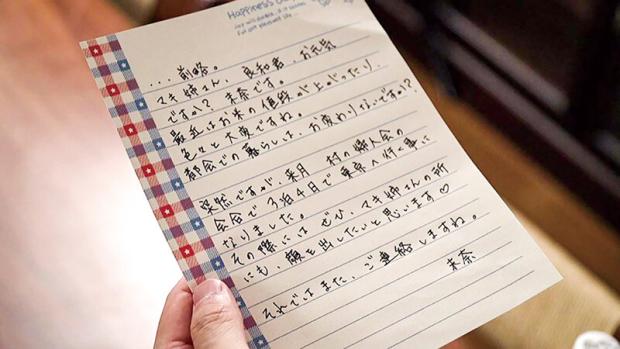 Happiness
...前略。
マキ姉さん、良和君、お元気
ですか？ 未奈です。
最近はお米の値段が上がったり、
色々と大変ですね。
都会での暮らしは、お変わりないですか？
突然ですが、来月、村の婦人会の
会合で3泊4日で東京へ行く事に
なりました。
その際にはぜひ、マキ姉さんの所
にも、顔を出したいと思います♡
それではまた、ご連絡しますね。
未奈